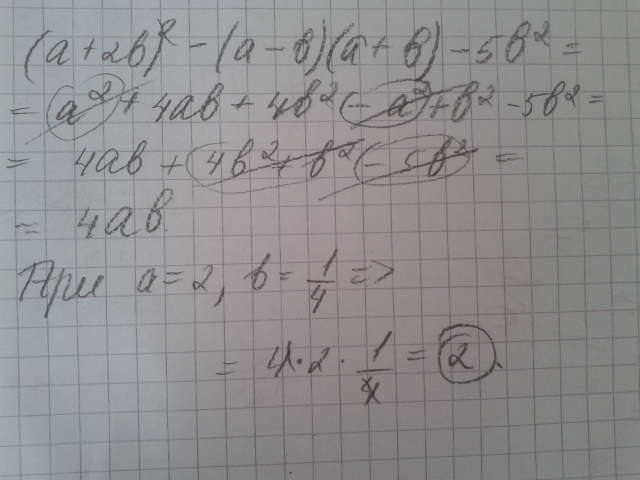 (a+2b)² - (a-b)(a+b) - 5b² =
= a² + 4ab + 4b² - a² + b² - 5b² =
= 4ab + 4b² + b² - 5b² =
= 4ab
При a=2, b=1/4 =>
= 4·2·1/4 = 2.